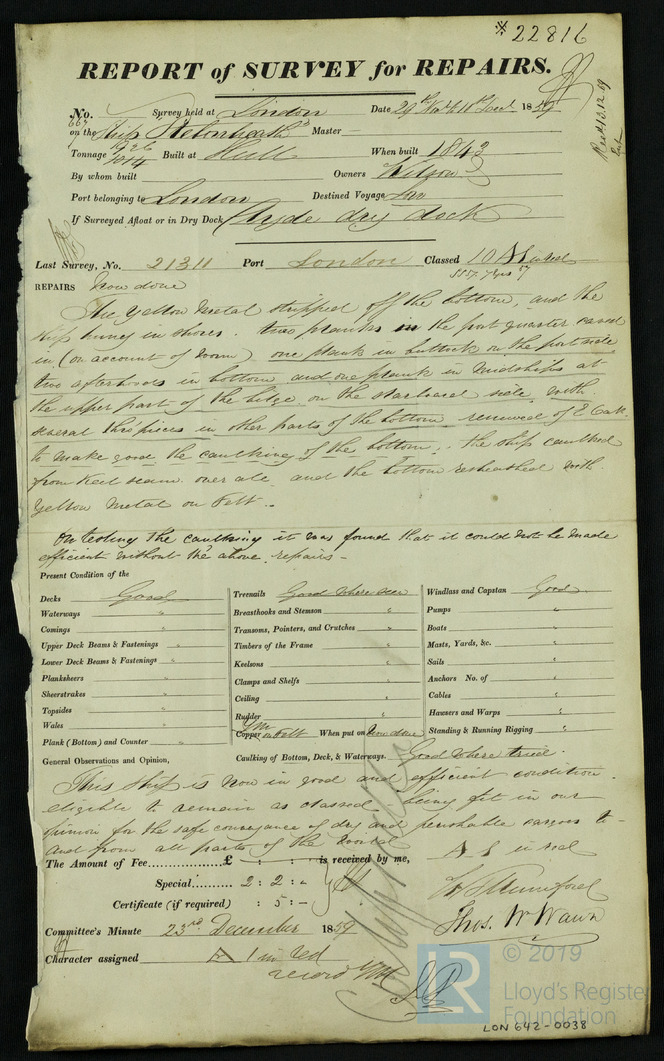 * 22816
REPORT of SURVEY for REPAIRS.
No. 667 Survey held at London Date 29th Novr 10th Decr 1859
on the Ship Stebonheath Master —
Tonnage 926 1014 Built at Hull When built 1843
By whom built Owners Wilson
Port belonging to London Destined Voyage
If Surveyed Afloat or in Dry Dock Clyde dry dock
Recd 13.12.59
Last Survey, No. 21311 Port London Classed 10 A1 in red
57
REPAIRS Now done
The Yellow Metal stripped off the bottom, and the
ship hung in shores. two planks in the port quarter eased
in (on account of room) one plank in buttock on the port side
two afterhoods in bottom and one plank in midships at
the upper part of the bilge on the starboard side, with
several short pieces in other parts of the bottom renewed of E Oak
to make good the caulking of the bottom. the ship caulked
from Keel seam over all and the bottom resheathed with
Yellow Metal on Felt.
On testing the caulking it was found that it could not be made
efficient without the above repairs —
Present Condition of the
Decks Good
Waterways "
Comings "
Upper Deck Beams & Fastenings "
Lower Deck Beams & Fastenings "
Planksheers "
Sheerstrakes "
Topsides "
Wales "
Plank (Bottom) and Counter "
Treenails Good where seen
Breasthooks and Stemson "
Transoms, Pointers, and Crutches "
Timbers of the Frame "
Keelsons "
Clamps and Shelfs "
Ceiling "
Rudder "
Copper YM on Felt When put on Now done
Caulking of Bottom, Deck, & Waterways. Good where tried.
Windlass and Capstan Good
Pumps "
Boats "
Masts, Yards, &c. "
Sails "
Anchors No. of "
Cables "
Hawsers and Warps "
Standing & Running Rigging "
General Observations and Opinion,
This ship is now in good and efficient condition.
eligible to remain as classed being fit in our
opinion for the safe conveyance of dry and perishable cargoes to
and from all parts of the world
A 1 in red
The Amount of Fee £ : : is received by me,
Special 2 : 2 : -
Certificate (if required) : 5 : -
Thos. W Wawn
Committee's Minute 23rd December 1859
Character assigned A 1 in red
record YM
LR
© 2019
Lloyd's Register
Foundation
LON 642-0038